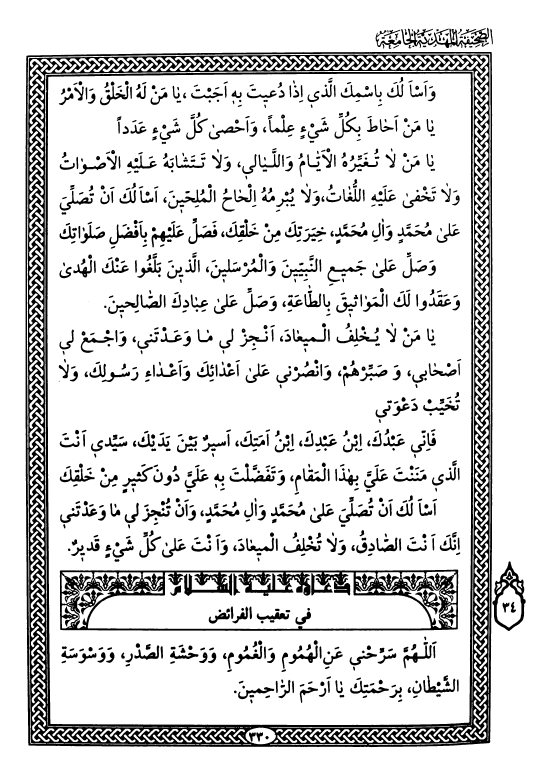 الصحيفة المهدية الجامعة
وَاَسْاَ لُكَ بِاسْمِكَ الَّذي اِذٰا دُعيتَ بِهِ اَجَبْتَ ،يٰا مَنْ لَهُ الْخَلْقُ وَالْاَمْرُ
يٰا مَنْ اَحٰاطَ بِكُلِّ شَيْءٍ عِلْماً، وَاَحْصىٰ كُلَّ شَيْءٍ عَدَداً
يٰا مَنْ لٰا تُغَيِّرُهُ الْاَيّٰامُ وَاللَّيٰالي، وَلٰا تَتَشٰابَهُ عَلَيْهِ الْاَصْوٰاتُ
وَلٰا تَخْفىٰ عَلَيْهِ اللُّغٰاتُ،وَلٰا يُبْرِمُهُ اِلْحٰاحُ الْمُلِحّينَ، اَسْاَ لُكَ اَنْ تُصَلِّيَ
عَلىٰ مُحَمَّدٍ وَاٰلِ مُحَمَّدٍ، خِيَرَتِكَ مِنْ خَلْقِكَ، فَصَلِّ عَلَيْهِمْ بِاَفْضَلِ صَلَوٰاتِكَ
وَصَلِّ عَلىٰ جَميعِ النَّبِيّينَ وَالْمُرْسَلينَ، الَّذينَ بَلَّغُوا عَنْكَ الْهُدىٰ
وَعَقَدُوا لَكَ الْمَوٰاثيقَ بِالطّٰاعَةِ، وَصَلِّ عَلىٰ عِبٰادِكَ الصّٰالِحينَ.
يٰا مَنْ لٰا يُخْلِفُ الْميعٰادَ، اَنْجِزْ لي مٰا وَعَدْتَني، وَاجْمَعْ لي
اَصْحٰابي، وَ صَبِّرْهُمْ، وَانْصُرْني عَلىٰ اَعْدٰائِكَ وَاَعْدٰاءِ رَسُولِكَ، وَلٰا
تُخَيِّبْ دَعْوَتي
فَاِنّي عَبْدُكَ، اِبْنُ عَبْدِكَ، اِبْنُ اَمَتِكَ، اَسيرٌ بَيْنَ يَدَيْكَ، سَيِّدي اَنْتَ
الَّذي مَنَنْتَ عَلَيَّ بِهٰذَا الْمَقٰامِ، وَتَفَضَّلْتَ بِهِ عَلَيَّ دُونَ كَثيرٍ مِنْ خَلْقِكَ
اَسْاَ لُكَ اَنْ تُصَلِّيَ عَلىٰ مُحَمَّدٍ وَاٰلِ مُحَمَّدٍ، وَاَنْ تُنْجِزَ لي مٰا وَعَدْتَني
اِنَّكَ اَنْتَ الصّٰادِقُ، وَلٰا تُخْلِفُ الْميعٰادَ، وَاَ نْتَ عَلىٰ كُلِّ شَيْءٍ قَديرٌ.
دعاؤه عليه السلام
في تعقيب الفرائض
اَللّٰهُمَّ سَرِّحْني عَنِ الْهُمُومِ وَالْغُمُومِ، وَوَحْشَةِ الصَّدْرِ، وَوَسْوَسَةِ
الشَّيْطٰانِ، بِرَحْمَتِكَ يٰا اَرْحَمَ الرّٰاحِمينَ.
٣٤
٣٣٠